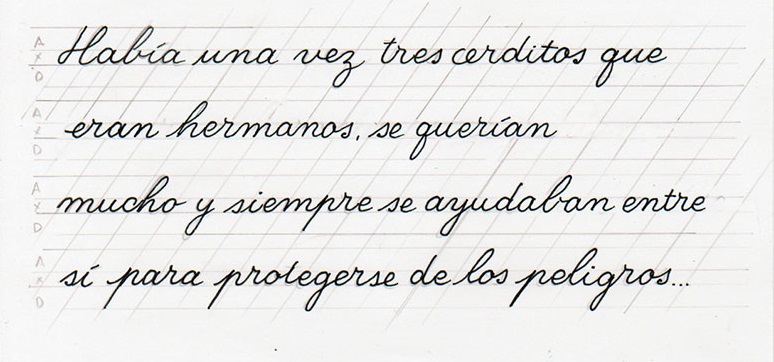 A
x
D
Había una vez tres cerditos que
A
x
D
eran hermanos, se querían
A
x
D
mucho y siempre se ayudaban entre
A
x
D
sí para protegerse de los peligros...